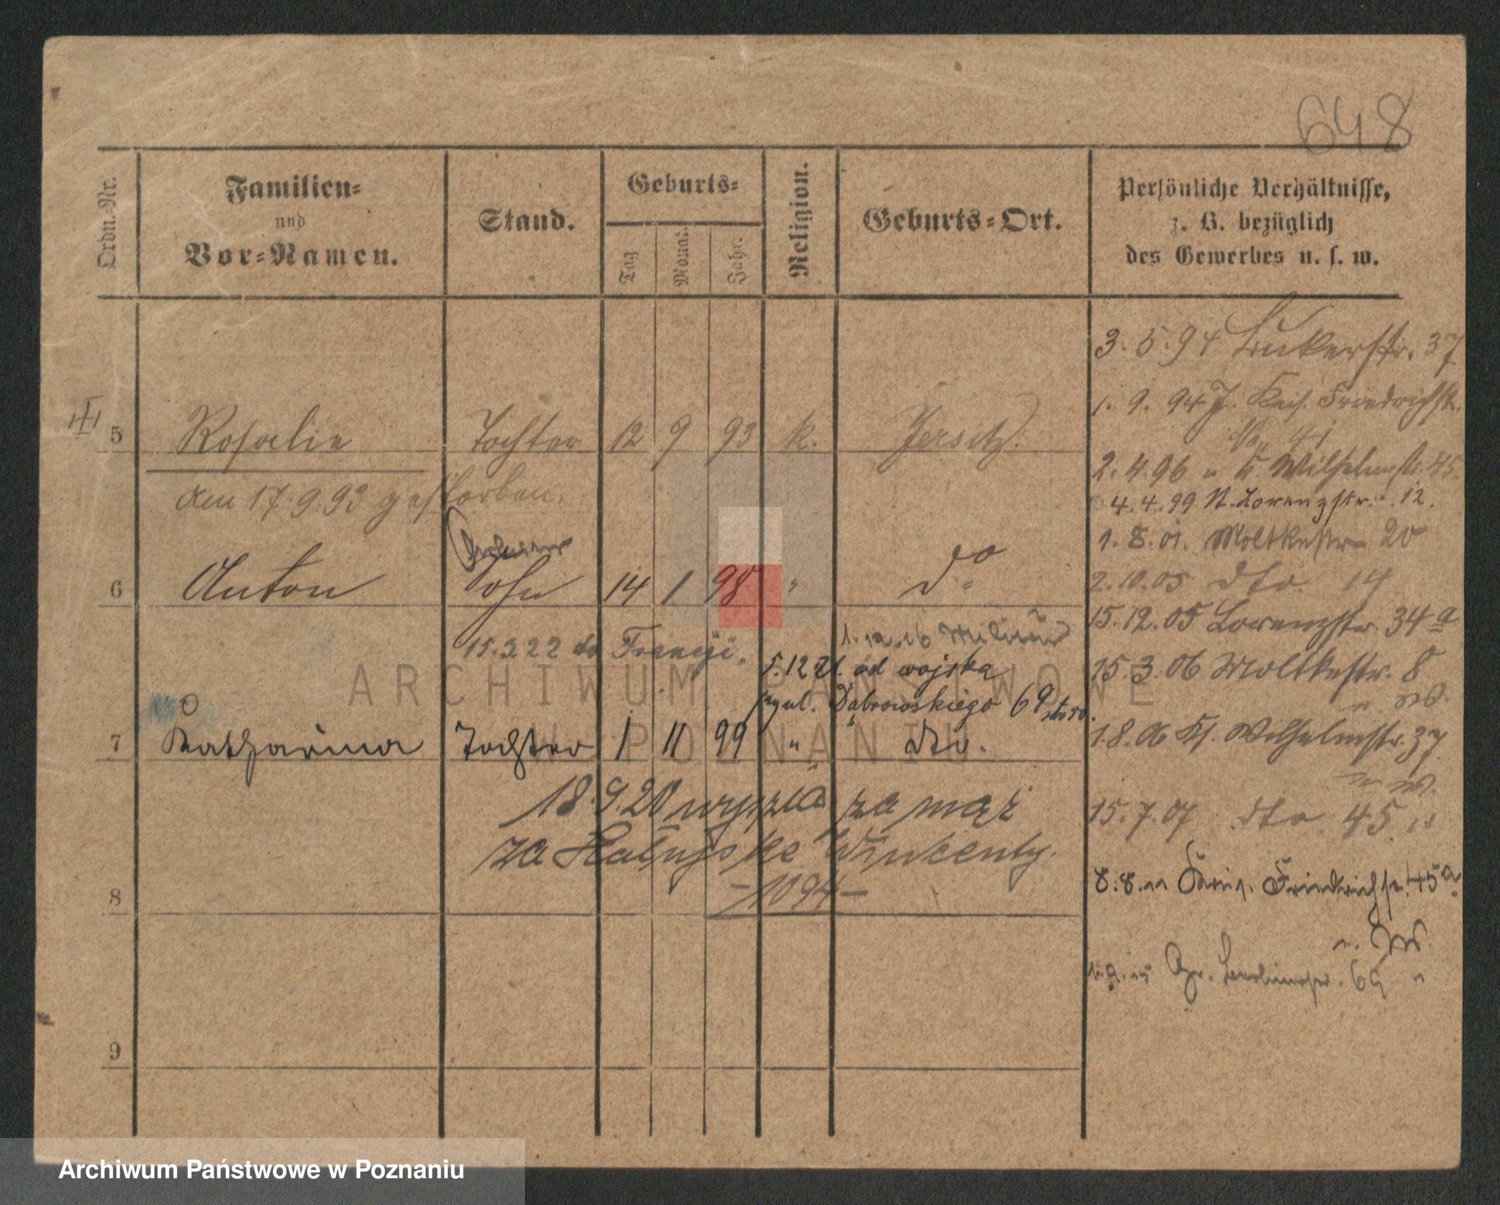 648
Ordn.-Nr.
Familien-
und
Vor-Namen.
Stand.
Geburts-
Tag
Monat.
Jahr.
Religion.
Geburts-Ort.
Persönliche Verhältnisse,
z. B. bezüglich
des Gewerbes u. s. w.
3. 5. 94 37
1. 9. 94 J. Kais. Friedrichstr.
5 Rosalie Tochter 12 9 93 k. Jersitz.
2. 4. 96 " Kl Wilhelmstr. 45
am 17. 9. 93 gestorben.
4. 4. 99 St. Lorenzstr. 12.
1. 8. 01. Moltkestr 20
6 Anton Sohn 14 1 98 " do
2. 10. 05 dto. 14
15. 12. 05 Lorenzstr. 34a
1. 12. 16 Militär
15. 3. 22 do Francji.
5. 12 21. od wojska
15. 3. 06 Moltkestr. 8
ul. Dąbrowskiego 69
7 Katharina Tochter 1 11 99 " dto.
1. 8. 06 Kl. Wilhelmstr. 37
18. 9. 20 wyszła za mąż
15. 7. 07 dto 45
za Wincenty.
8. 8. 11 Kais. Friedrichstr. 45a
8 -1094-
1. 9. 15 Gr. Berlinerstr. 69 "
9
ARCHIWUM PAŃSTWOWE
W POZNANIU
Archiwum Państwowe w Poznaniu